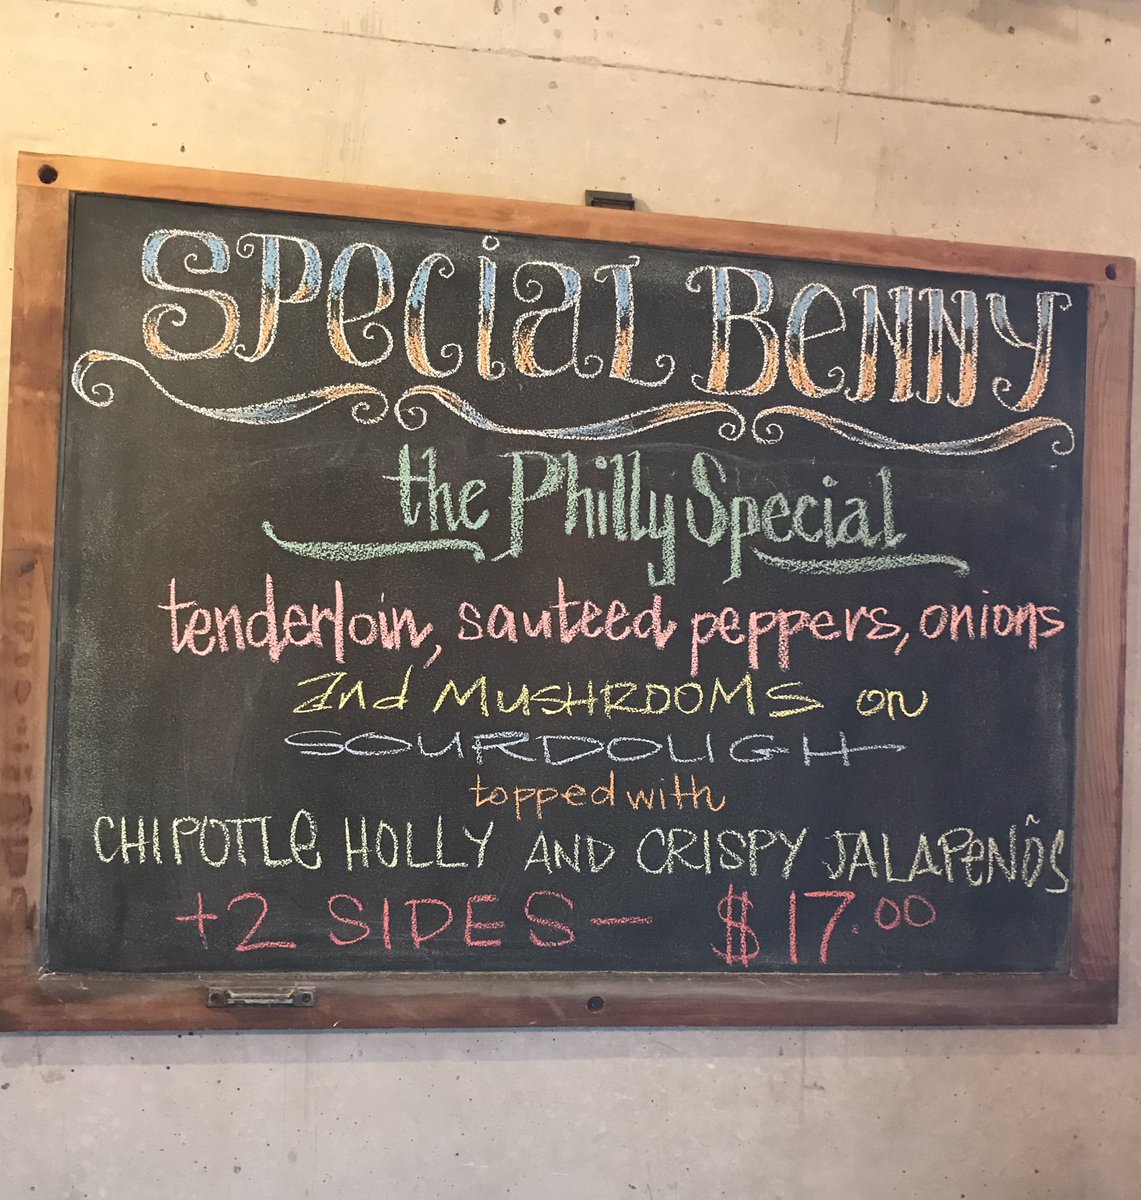 SPeCiaL BeNNY
the Philly Special
tenderloin, sauteed peppers, onions
and MUSHROOMS on
SOURDOUGH
topped with
CHIPOTLe HOLLY AND CRISPY JALAPeNÕS
+2 SIDES — $17.00